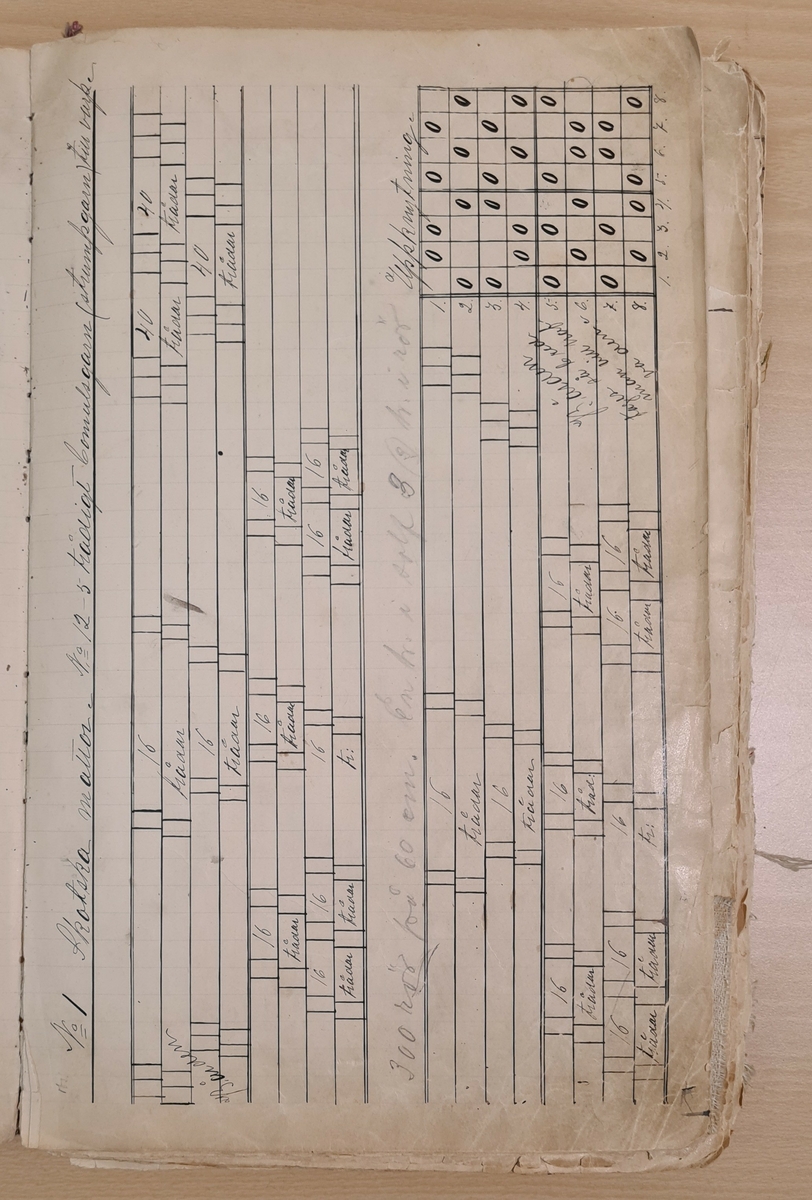 No 1 Skotska mattor. No 12-5 trådigt bomulsgarn (strumpgarn) till varp.
40 40
trådar trådar
40
trådar
16
trådar
16
trådar
16 16 16
trådar trådar trådar
16 16 16 16 16
trådar trådar tr: trådar trådar
300 rör på 60 cm. En tr. i solf 3 (2) tr. i rör
Uppknytning.
16
trådar
16
trådar
16 16 16
trådar tråd: trådar
16 16 16 16 16
trådar trådar tr: trådar trådar
1. 0 0 0 0
2. 0 0 0 0
3. 0 0 0 0
4. 0 0 0 0
5. 0 0 0 0
6. 0 0 0 0
7. 0 0 0 0
8. 0 0 0 0
1. 2. 3. 4. 5. 6. 7. 8.